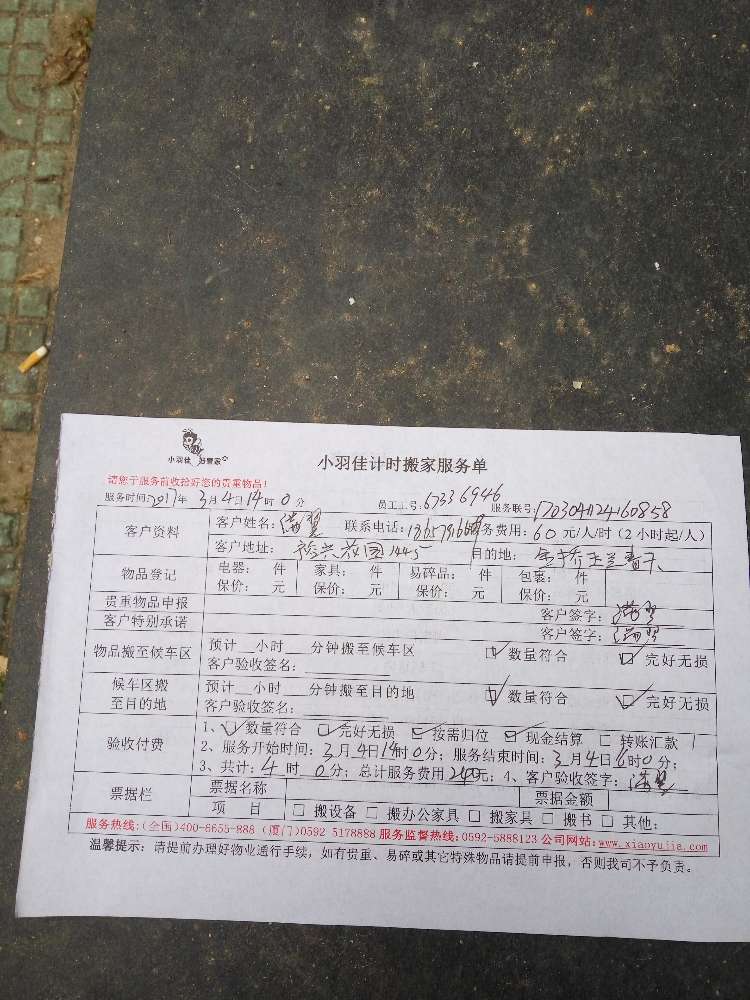 小羽佳 好管家
小羽佳计时搬家服务单
请您于服务前收拾好您的贵重物品！
服务时间：2017年 3月4日14时0分 员工工号：67336946 服务联号：
客户资料 客户姓名： 联系电话： 服务费用：60元/人/时（2小时起/人）
客户地址： 目的地：
物品登记 电器： 件 家具： 件 易碎品： 件 包裹： 件
保价： 元 保价： 元 保价： 元 保价： 元
贵重物品申报 客户签字：
客户特别承诺 客户签字：
物品搬至候车区 预计__小时___分钟搬至候车区 数量符合 完好无损
客户验收签名：
候车区搬至目的地 预计__小时___分钟搬至目的地 数量符合 完好无损
客户验收签名：
验收付费 1、数量符合 完好无损 按需归位 现金结算 转账汇款
2、服务开始时间：3月4日14时0分；服务结束时间：3月4日16时0分；
3、共计：4时0分；总计服务费用240元；4、客户验收签字：
票据栏 票据名称 票据金额
项 目 搬设备 搬办公家具 搬家具 搬书 其他：
服务热线：(全国)400-8655-888 (厦门)0592 5178888 服务监督热线：0592-5888123 公司网站：www.xiaoyujia.com
温馨提示：请提前办理好物业通行手续，如有贵重、易碎或其它特殊物品请提前申报，否则我司不予负责。